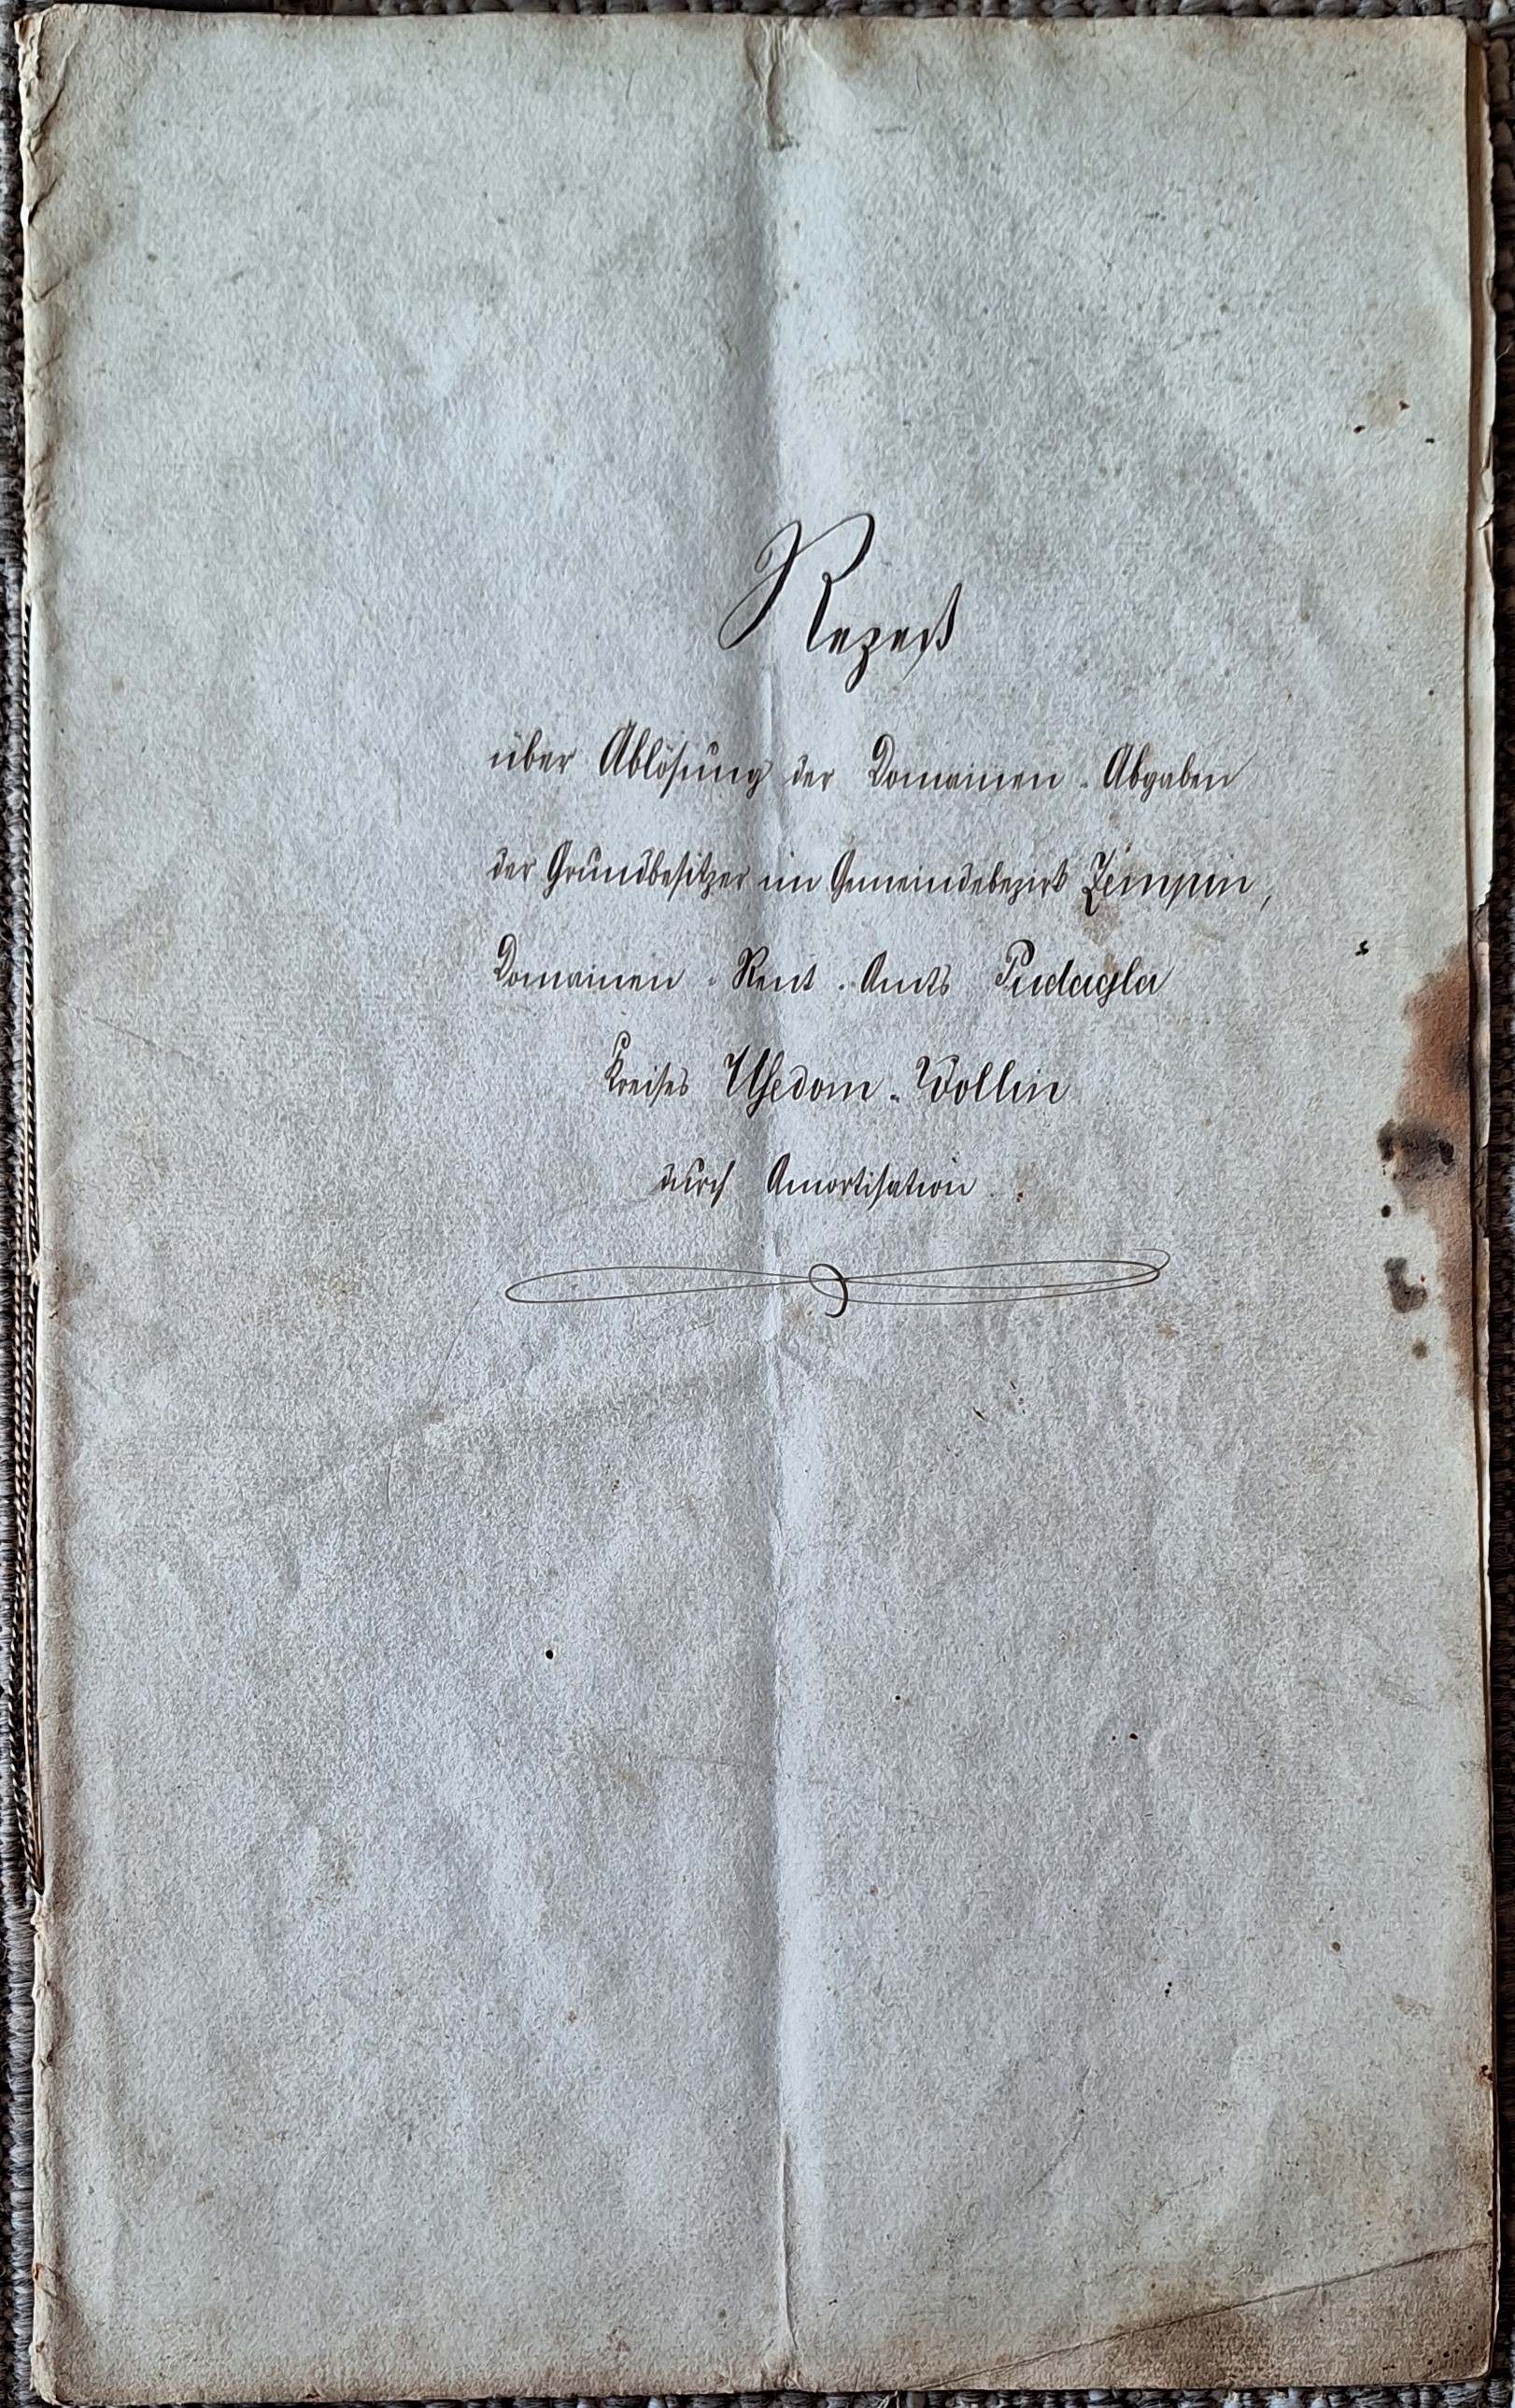 Rezeß
über Ablösung der Domainen-Abgaben
der Grundbesitzer im Gemeindebezirk Zempin,
Domainen-Rent-Amts Pudagla
Kreises Usedom-Wollin
durch Amortisation.